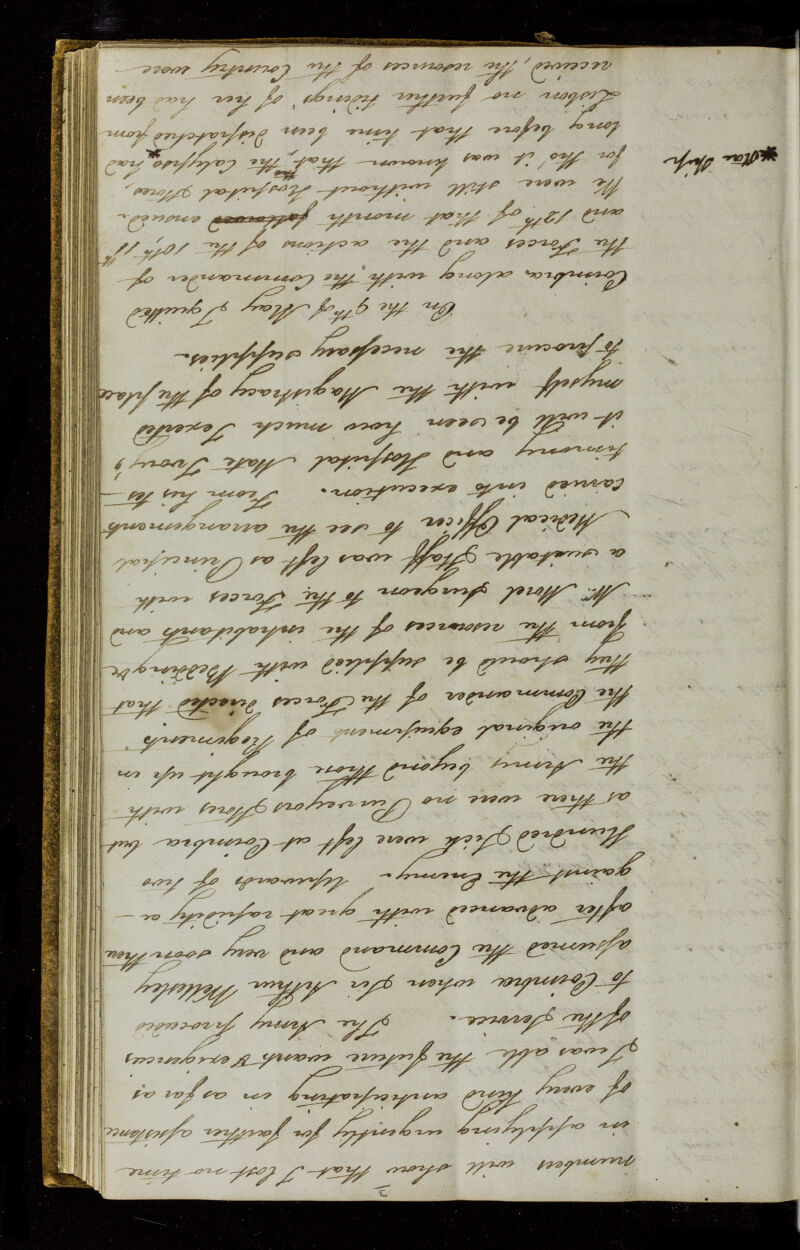 3
numbers will show that I lost no time
in applying urgently for farther assistance
of every kind anticipating in as far as
I was able the future wants & exigencies
of the Service. The Army proceeded
to Coimbra when Sir Arthur Wellesley
assumed the Command and very soon there
after advanced with great rapidity a-
gainst the Enemy. Upwards of two
Hundred Sick were left at Coimbra but
as there were no Purveyors Stores with
the Army beyond those brought up in
the original equipment of Regiments
the Commander of the Forces directed that
they should be supplied with Bedding &c
from the resources of the inhabitants and
Mr. Morel Surgeon to the Forces with
a suitable Staff was left as Principal
Medical Officer to see the arrangements
carried into execution. From his tes-
timony and Hospital Mate Ivory's
it will be seen how much I exerted
myself with the Magistracy of the place
to procure the necessary supplies.
On the 9th of May I quitted
Coimbra along with the Commander of
the Forces and the actions of the 10th, 11th
and 12th of that month followed ensued.
We were still without Hospital Stores,
for tho' it was known that the Calypso* had
long before that time been dispatched from
Lisbon no further tidings of her had been
received, the resources of the Country were
* Star Ship